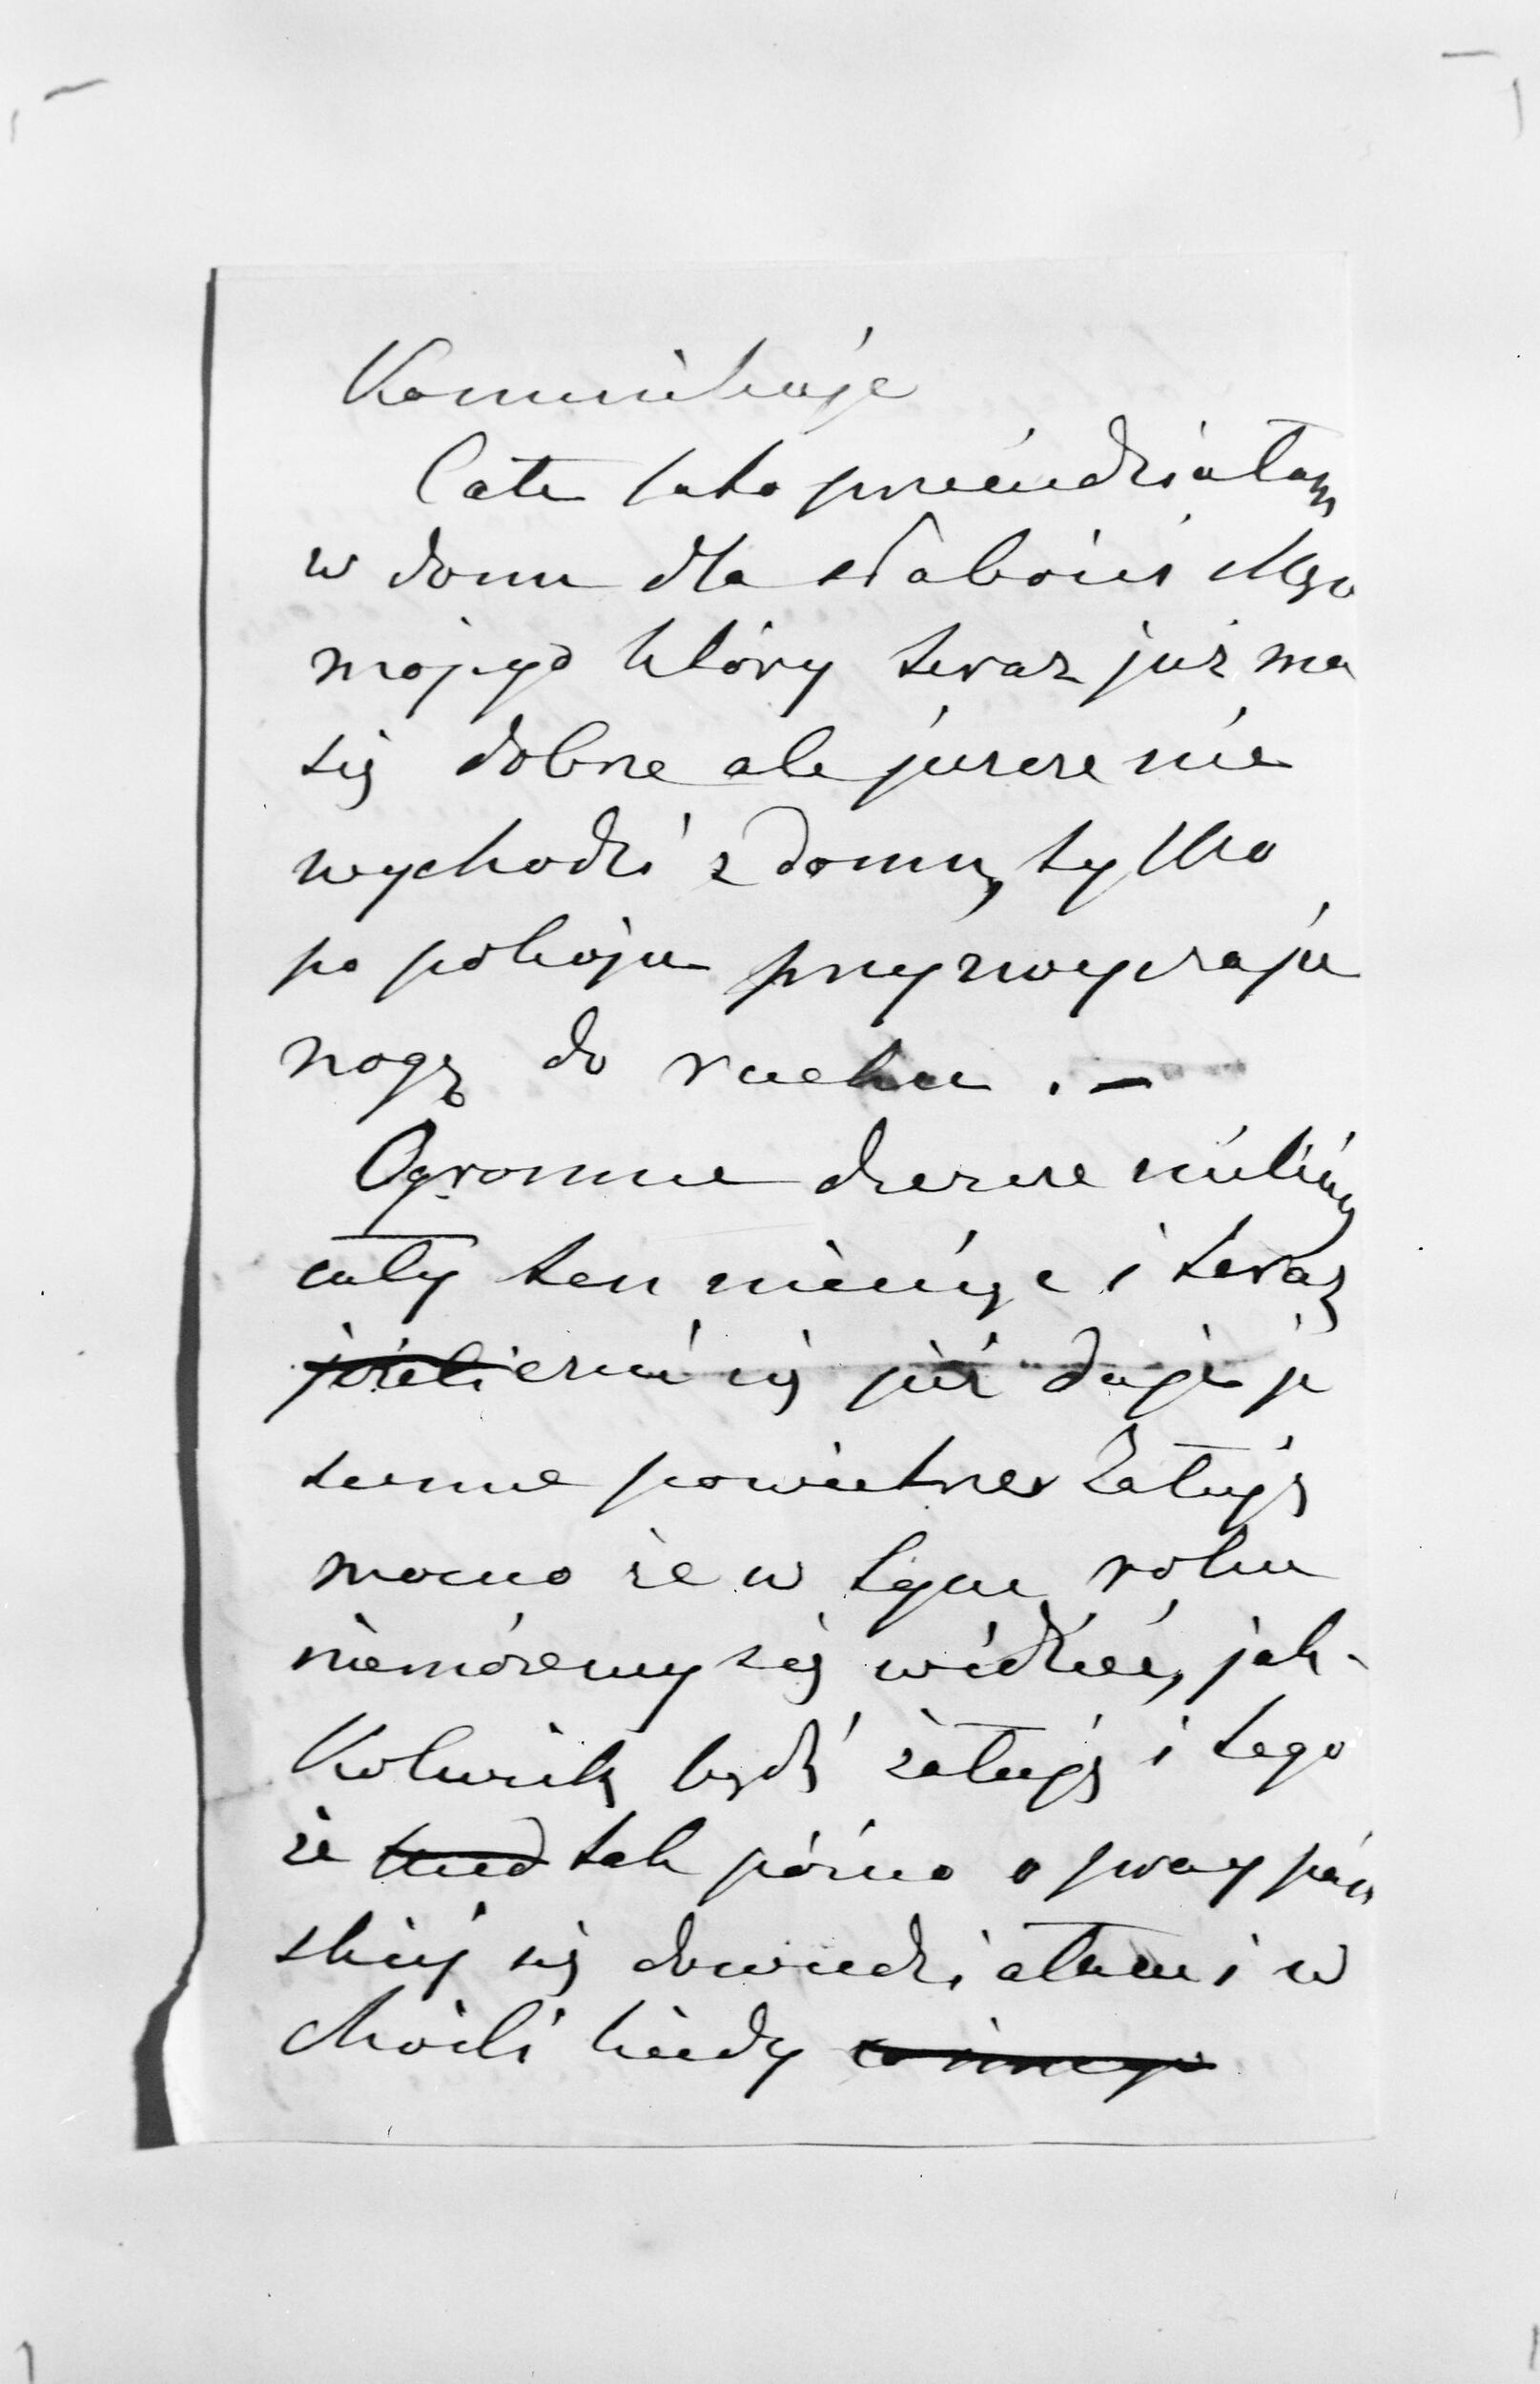 Komunikuje
Całe lato przesiedziałam
w domu dla słabości Mgo
mojego który teraz już ma
się dobrze ale jeszcze nie
wychodzi z domu, tylko
po pokoju przyzwyczaja
nogę do ruchu . –
Ogromne deszcze mieliśmy
cały ten miesiąc i teraz
jeżeli czuć się już daje je
sienne powietrze Żałuję
mocno że w tym roku
niemóżemy się widzieć, jak-
Kolwiek bądź żałuję i tego
że tak późno o pracy pań
skiej się dowiedziałam i w
chwili kiedy